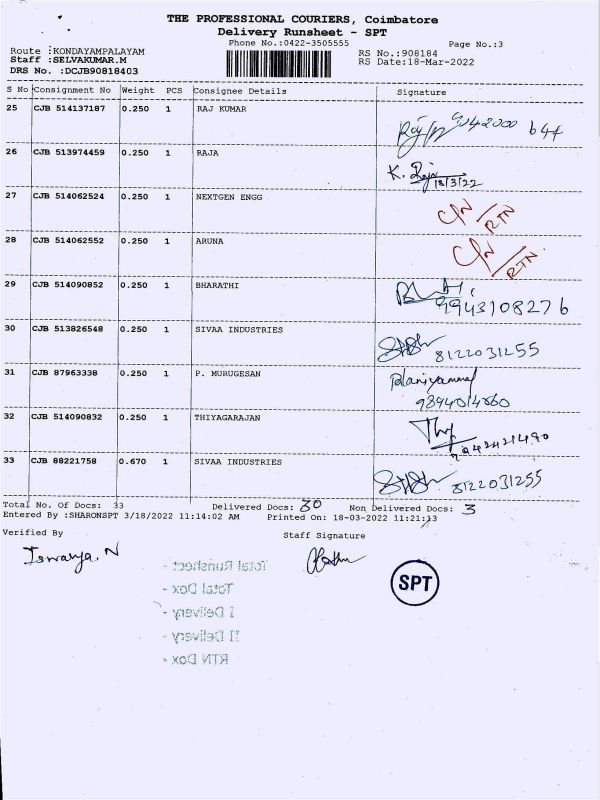 THE PROFESSIONAL COURIERS, Coimbatore
Delivery Runsheet - SPT
Phone No.:0422-3505555
Page No.:3
Route :KONDAYAMPALAYAM
RS No.:908184
Staff :SELVAKUMAR.M
RS Date:18-Mar-2022
DRS No. :DCJB90818403
S No Consignment No Weight PCS Consignee Details Signature
25 CJB 514137187 0.250 1 RAJ KUMAR 9042000 644
26 CJB 513974459 0.250 1 RAJA K. Raja 18/3/22
27 CJB 514062524 0.250 1 NEXTGEN ENGG C/N/RTN
28 CJB 514062552 0.250 1 ARUNA C/N/RTN
29 CJB 514090852 0.250 1 BHARATHI 9943108276
30 CJB 513826548 0.250 1 SIVAA INDUSTRIES 8122031255
31 CJB 87963338 0.250 1 P. MURUGESAN Palaniyammal
9894014660
32 CJB 514090832 0.250 1 THIYAGARAJAN 9842421490
33 CJB 88221758 0.670 1 SIVAA INDUSTRIES 8122031255
Total No. Of Docs: 33 Delivered Docs: 30 Non Delivered Docs: 3
Entered By :SHARONSPT 3/18/2022 11:14:02 AM Printed On: 18-03-2022 11:21:13
Verified By Staff Signature
Iswarya. N
SPT
Total Runsheet -
Total Dox -
I Delivery -
II Delivery -
RTN Dox -